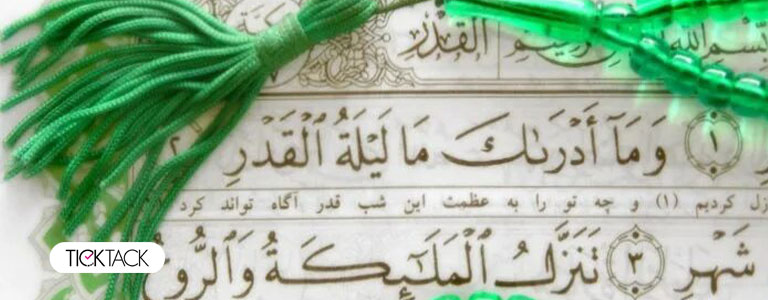 القدر
بسم الله
١ وَمَآ أَدْرَىٰكَ مَا لَيْلَةُ ٱلْقَدْرِ ٢
کردیم (۱) و چه تو را به عظمت این شب قدر آگاه تواند کرد
شَهْرٍ ٣ تَنَزَّلُ ٱلْمَلَـٰٓئِكَةُ وَٱلرُّو
TICKTACK